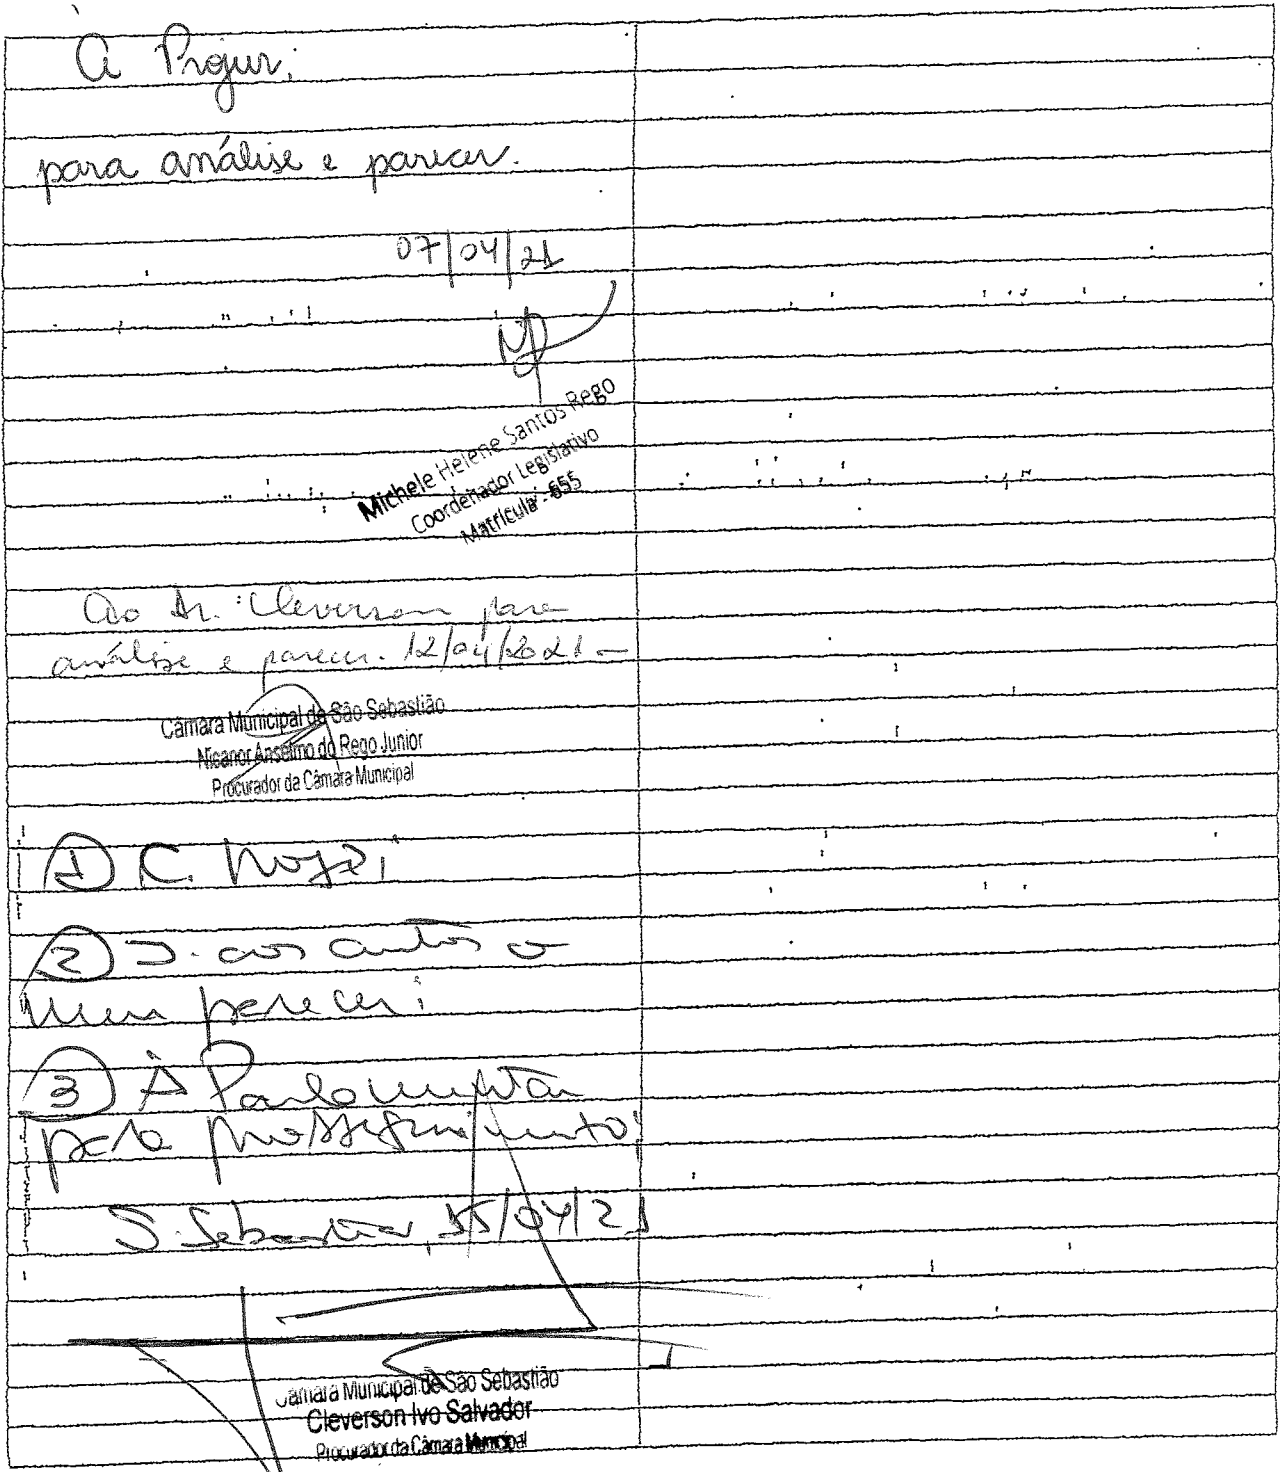 À Projur,
para análise e parecer.
07/04/21
Michele Helene Santos Rego
Coordenador Legislativo
Matrícula - 655
Ao Dr. Cleverson para
análise e parecer. 12/04/2021 -
Câmara Municipal de São Sebastião
Nicanor Anselmo do Rego Junior
Procurador da Câmara Municipal
1) C. hoje;
2) J. aos autos o
meu parecer;
3) À Parlamentar
pelo prosseguimento;
S. Sebastião, 15/04/21
Câmara Municipal de São Sebastião
Cleverson Ivo Salvador
Procurador da Câmara Municipal